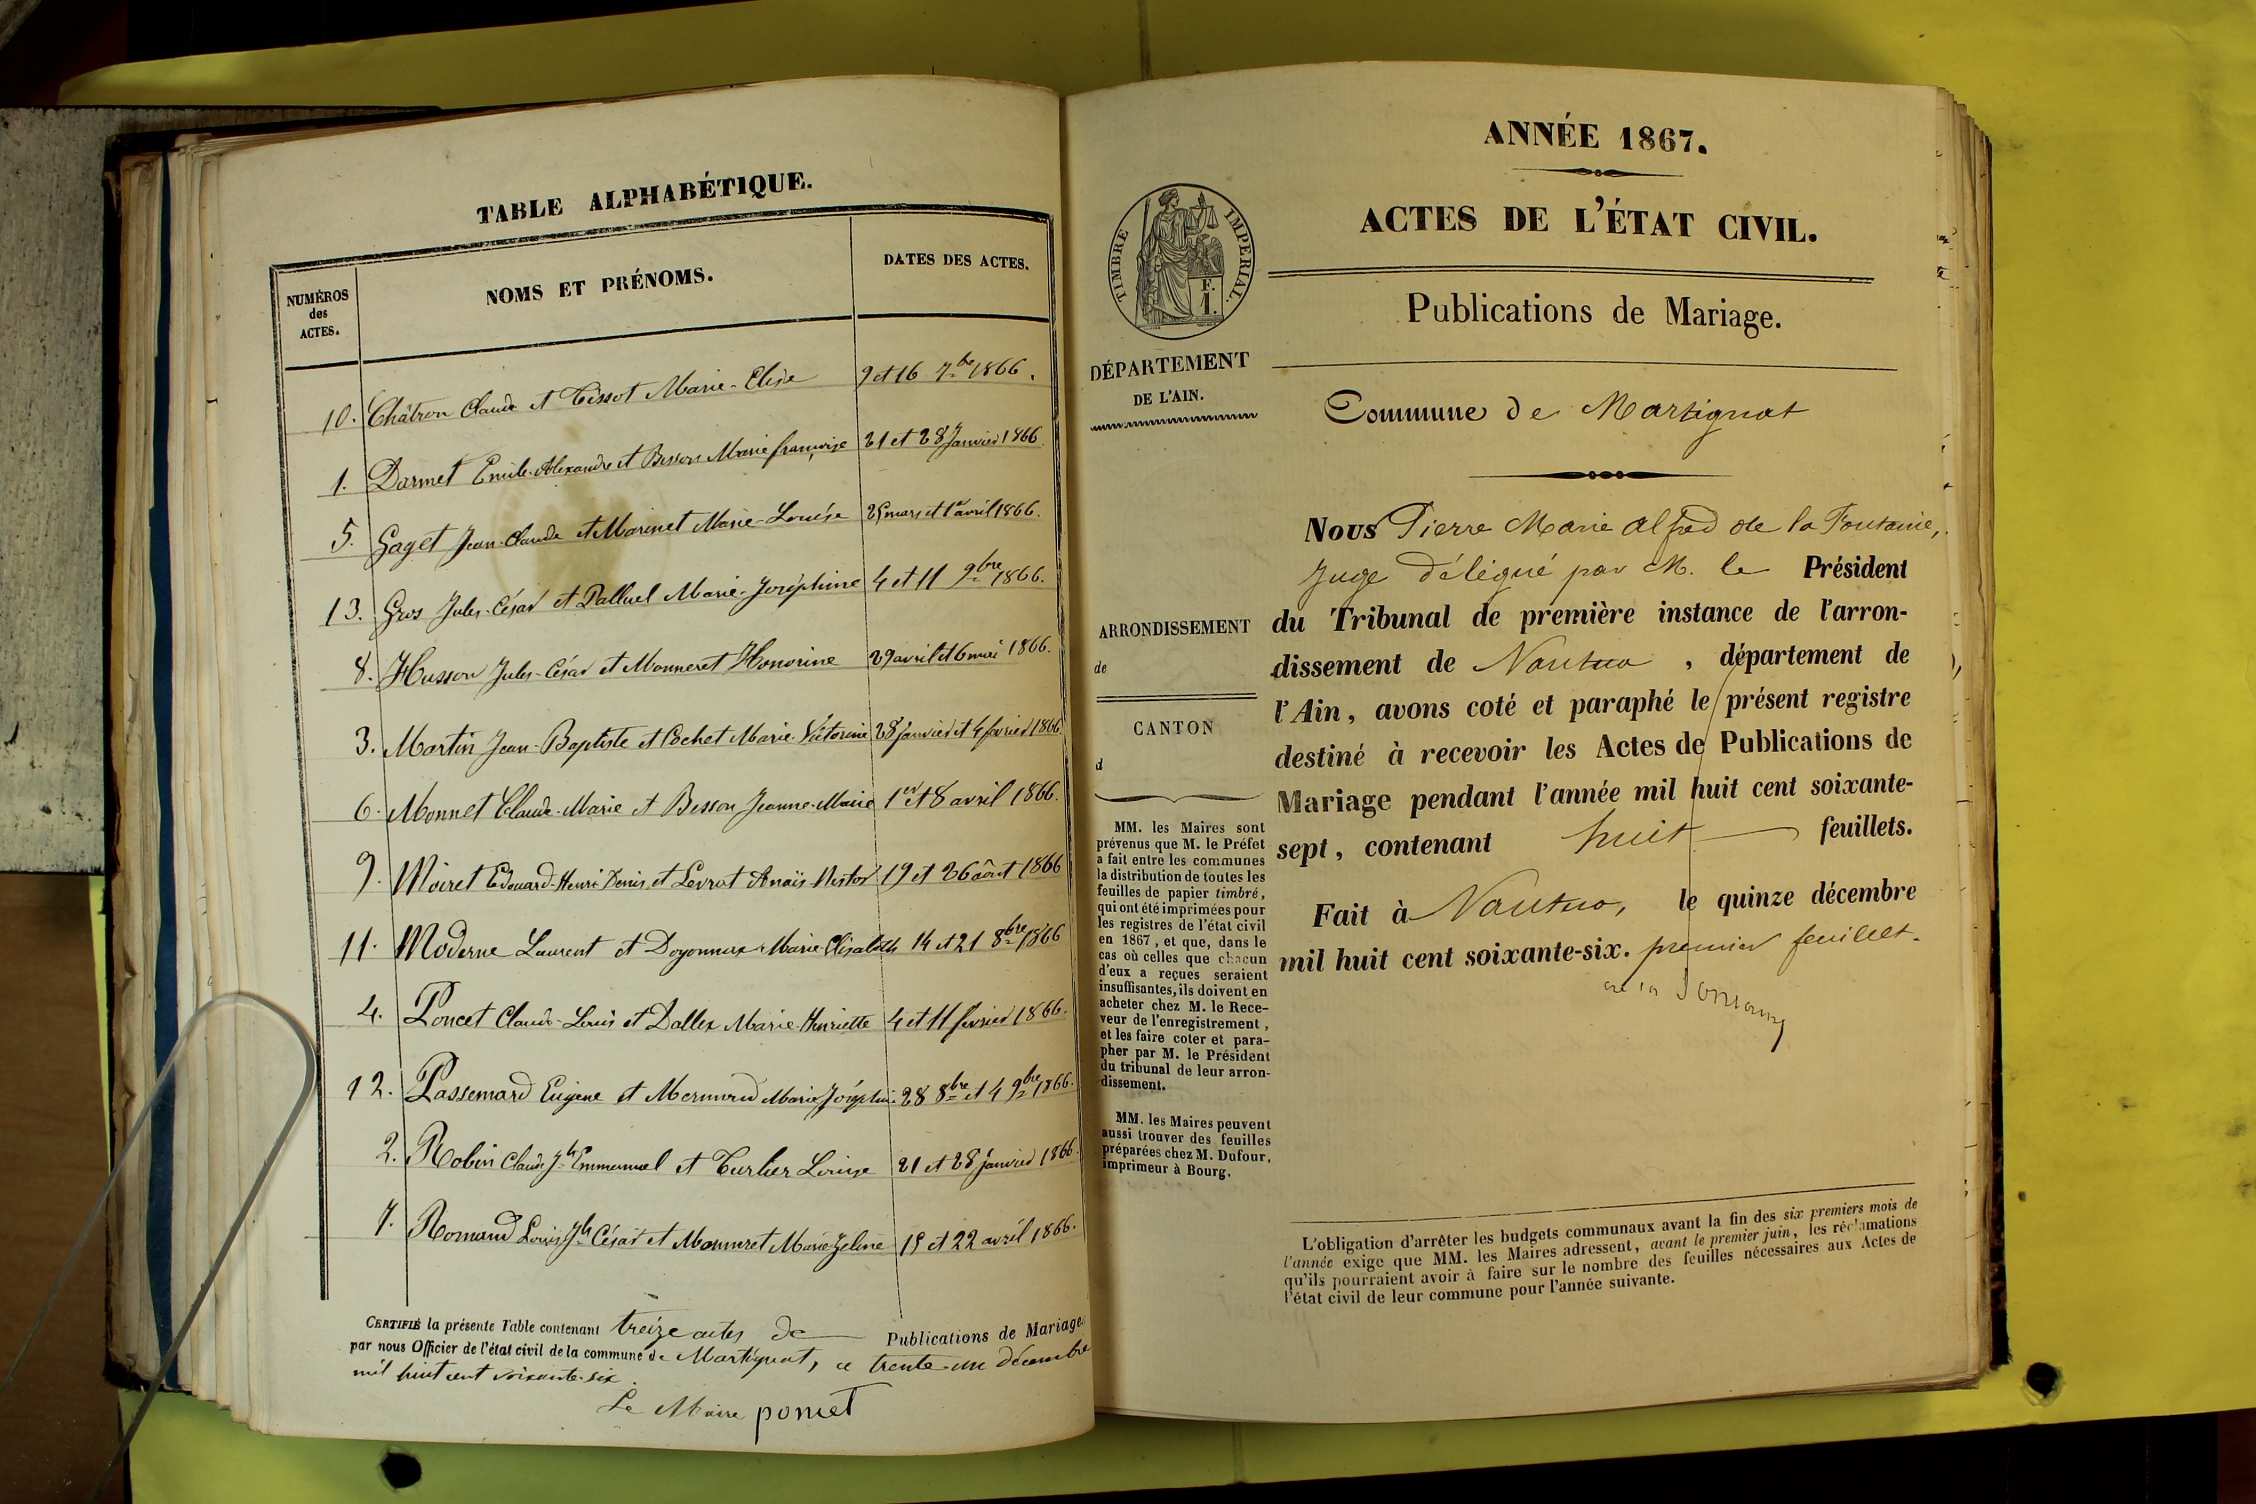 TABLE ALPHABÉTIQUE.
NUMÉROS
des
ACTES.
NOMS ET PRÉNOMS.
DATES DES ACTES.
10. Châtron Claude et Tissot Marie-Elise 9 et 16 7bre 1866.
1. Darmet Emile-Alexandre et Besson Marie françoise 21 et 28 Janvier 1866.
5. Gaget Jean-Claude et Marinet Marie-Louise 25 mars et 1er avril 1866.
13. Gros Jules-César et Dalluel Marie-Joséphine 4 et 11 9bre 1866.
8. Husson Jules-César et Monneret Honorine 29 avril et 6 mai 1866.
3. Martin Jean-Baptiste et Cochet Marie-Victorine 28 janvier et 4 février 1866
6. Monnet Claude-Marie et Besson Jeanne-Marie 1er et 8 avril 1866.
9. Moiret Edouard-Henri Denis et Levrat Anaïs Nestor 19 et 26 août 1866
11. Moderne Laurent et Doyonnax Marie Elisabeth 14 et 21 8bre 1866
4. Poncet Claude-Louis et Dallex Marie-Henriette 4 et 11 février 1866.
12. Passemard Eugène et Mermand Marie Joséphine 28 8bre et 4 9bre 1866.
2. Robin Claude Jh Emmanuel et Turlier Louise 21 et 28 janvier 1866.
7. Romand Louis Jh César et Monneret Marie Zeline 15 et 22 avril 1866.
CERTIFIÉ la présente Table contenant treize actes de Publications de Mariage
par nous Officier de l'état civil de la commune de Martignat, ce trente-un décembre
mil huit cent soixante-six.
Le Maire poncet
ANNÉE 1867.
ACTES DE L'ÉTAT CIVIL.
Publications de Mariage.
TIMBRE IMPERIAL.
F.
1.
DÉPARTEMENT
DE L'AIN.
ARRONDISSEMENT
de
CANTON
d
MM. les Maires sont
prévenus que M. le Préfet
a fait entre les communes
la distribution de toutes les
feuilles de papier timbré,
qui ont été imprimées pour
les registres de l'état civil
en 1867, et que, dans le
cas où celles que chacun
d'eux a reçues seraient
insuffisantes, ils doivent en
acheter chez M. le Rece-
veur de l'enregistrement,
et les faire coter et para-
pher par M. le Président
du tribunal de leur arron-
dissement.
MM. les Maires peuvent
aussi trouver des feuilles
préparées chez M. Dufour,
imprimeur à Bourg.
Commune de Martignat
Nous Pierre Marie alfred de la Fontaine,
Juge délégué par M. le Président
du Tribunal de première instance de l'arron-
dissement de Nantua, département de
l'Ain, avons coté et paraphé le présent registre
destiné à recevoir les Actes de Publications de
Mariage pendant l'année mil huit cent soixante-
sept, contenant huit feuillets.
Fait à Nantua, le quinze décembre
mil huit cent soixante-six. premier feuillet.
L'obligation d'arrêter les budgets communaux avant la fin des six premiers mois de
l'année exige que MM. les Maires adressent, avant le premier juin, les réclamations
qu'ils pourraient avoir à faire sur le nombre des feuilles nécessaires aux Actes de
l'état civil de leur commune pour l'année suivante.